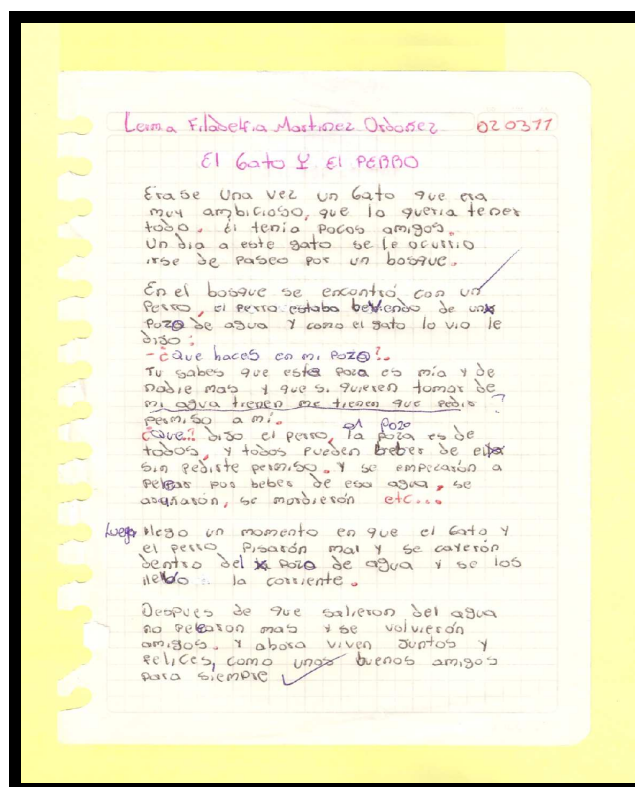 Leima Filadelfia Martinez Ordoñez 020311
El Gato Y El PERRO
Erase Una vez un Gato que era
muy ambicioso, que lo queria tener
todo. él tenia pocos amigos.
Un dia a este gato se le ocurrio
irse de paseo por un bosque.
En el bosque se encontró con un
Perro, el perro estaba bebiendo de un
Pozo de agua y como el gato lo vio le
dijo:
-¿Que haces en mi Pozo?.
Tu sabes que este poza es mía y de
nadie mas y que si quieren tomar de
mi agua tienen me tienen que pedir ?
permiso a mi.
el Pozo
¿Que? dijo el perro, la poza es de
todos, y todos pueden beber de
sin pedirte permiso. Y se empezarón a
pelear por beber de esa agua, se
aruñarón, se mordierón etc...
Luego llego un momento en que el Gato y
el perro Pisarón mal y se cayerón
dentro del Pozo de agua y se los
llebó la corriente.
Despues de que salieron del agua
no pelearon mas y se volvierón
amigos. Y ahora viven Juntos y
Felices, como unos buenos amigos
para siempre